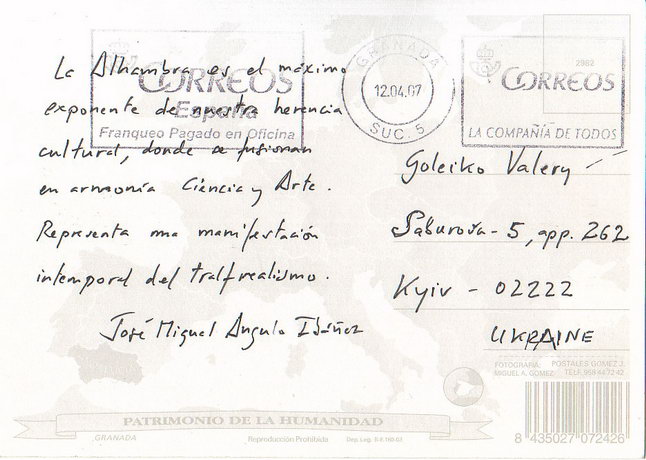 La Alhambra es el máximo
exponente de nuestra herencia
cultural, donde se fusionan
en armonía Ciencia y Arte.
Representa una manifestación
intemporal del tralfrealismo.
José Miguel Angulo Ibáñez
CORREOS
España
Franqueo Pagado en Oficina
GRANADA
12.04.07
SUC. 5
2982
CORREOS
LA COMPAÑÍA DE TODOS
Goleiko Valery
Saburova - 5, app. 262
Kyiv - 02222
UKRAINE
FOTOGRAFÍA: POSTALES GOMEZ J.
MIGUEL A. GOMEZ TELF. 958 44 72 42
PATRIMONIO DE LA HUMANIDAD
GRANADA Reproducción Prohibida Dep. Leg.
8 435027 072426